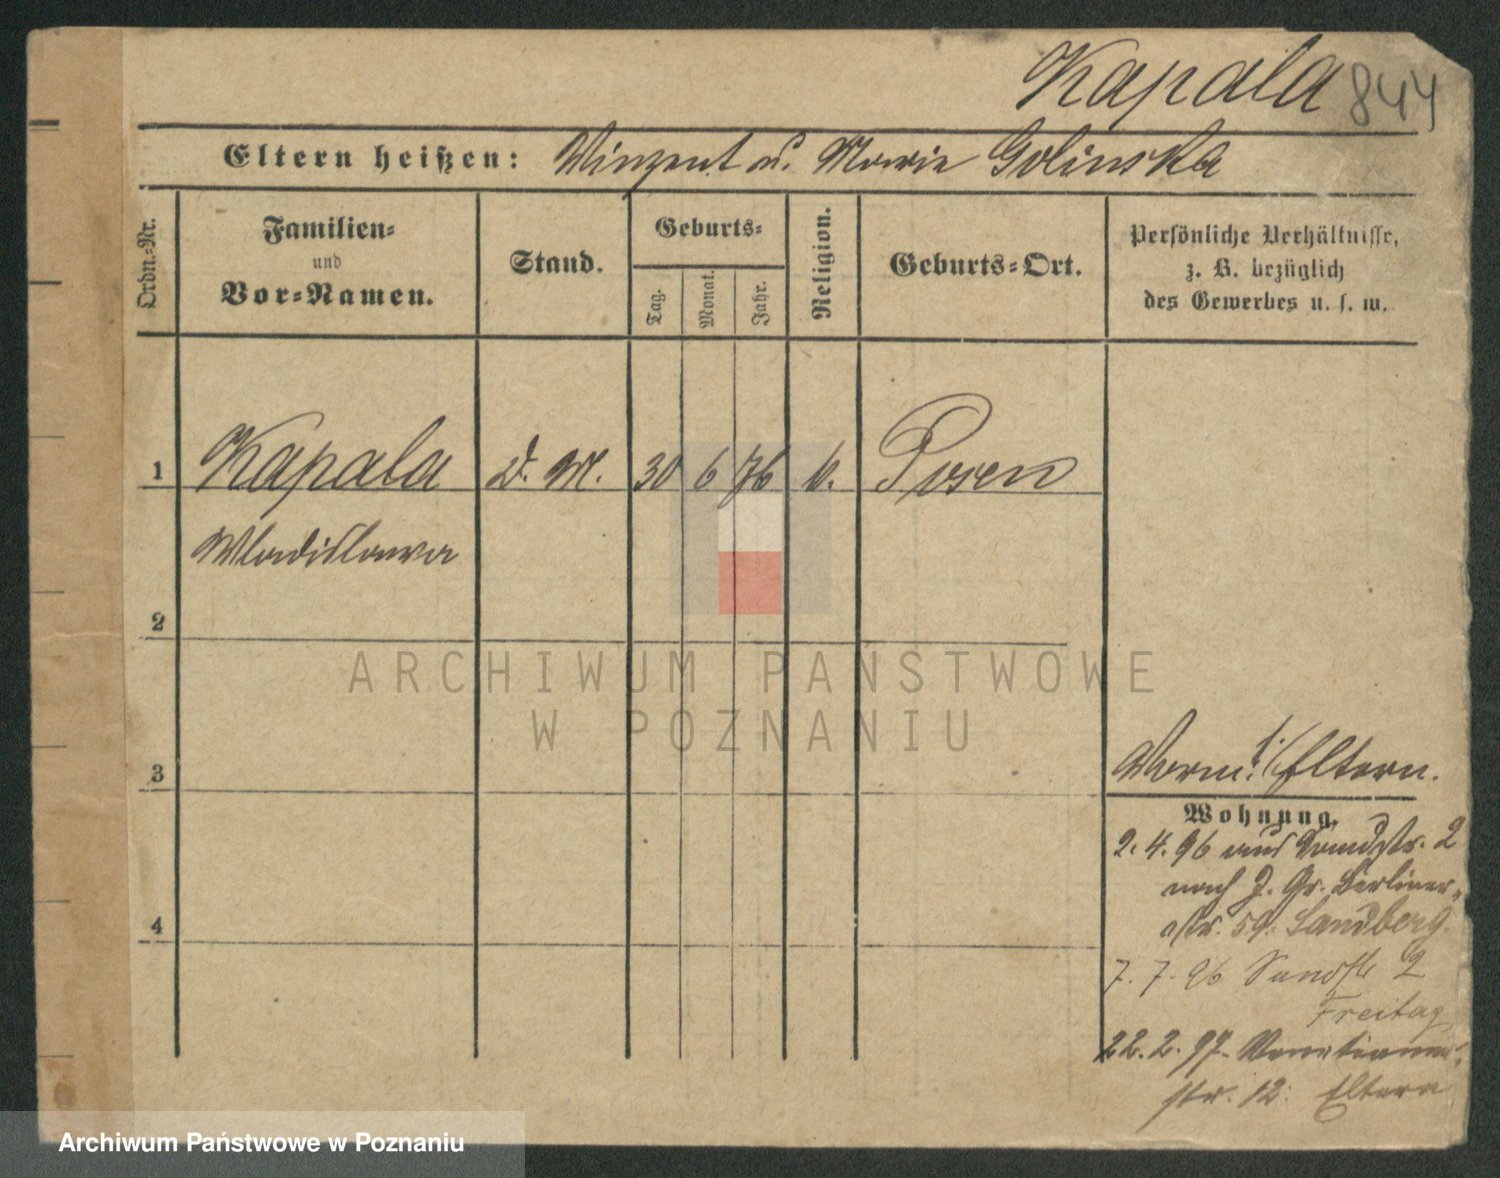 Kapala 844
Eltern heißen: Vinzent u. Marie Golinska
Ordn.-Nr.
Familien-
und
Vor-Namen.
Stand.
Geburts-
Tag.
Monat.
Jahr.
Religion.
Geburts-Ort.
Persönliche Verhältnisse,
z. B. bezüglich
des Gewerbes u. s. w.
1 Kapala D. M. 30 6 76 k. Posen
Wladislawa
2
ARCHIWUM PAŃSTWOWE
W POZNANIU
3
Eltern.
Wohnung.
2. 4. 96 aus Sandstr. 2
nach Gr. Berliner-
str. 59. Landberg.
7. 7. 96 Sandstr 2
4
Freitag
22. 2. 97. Venetianer-
str. 12. Eltern
Archiwum Państwowe w Poznaniu